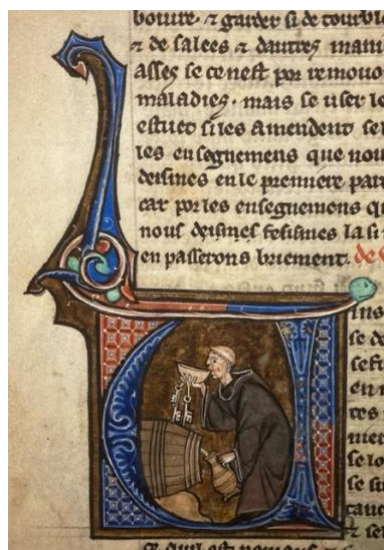 boiure . ⁊ garder si de tourbl
⁊ de salees ⁊ dautres mani
asses se cenest por remouo
maladies . mais se user le
estuet si les amendent se
les ensegnemens que nou
desimes en le premiere part
car por les ensegnemens q
nous desimes fesismes la si
en passerons briement. de
ins
se de
sest
en
ces
met
se lo
se si
caue
⁊ se